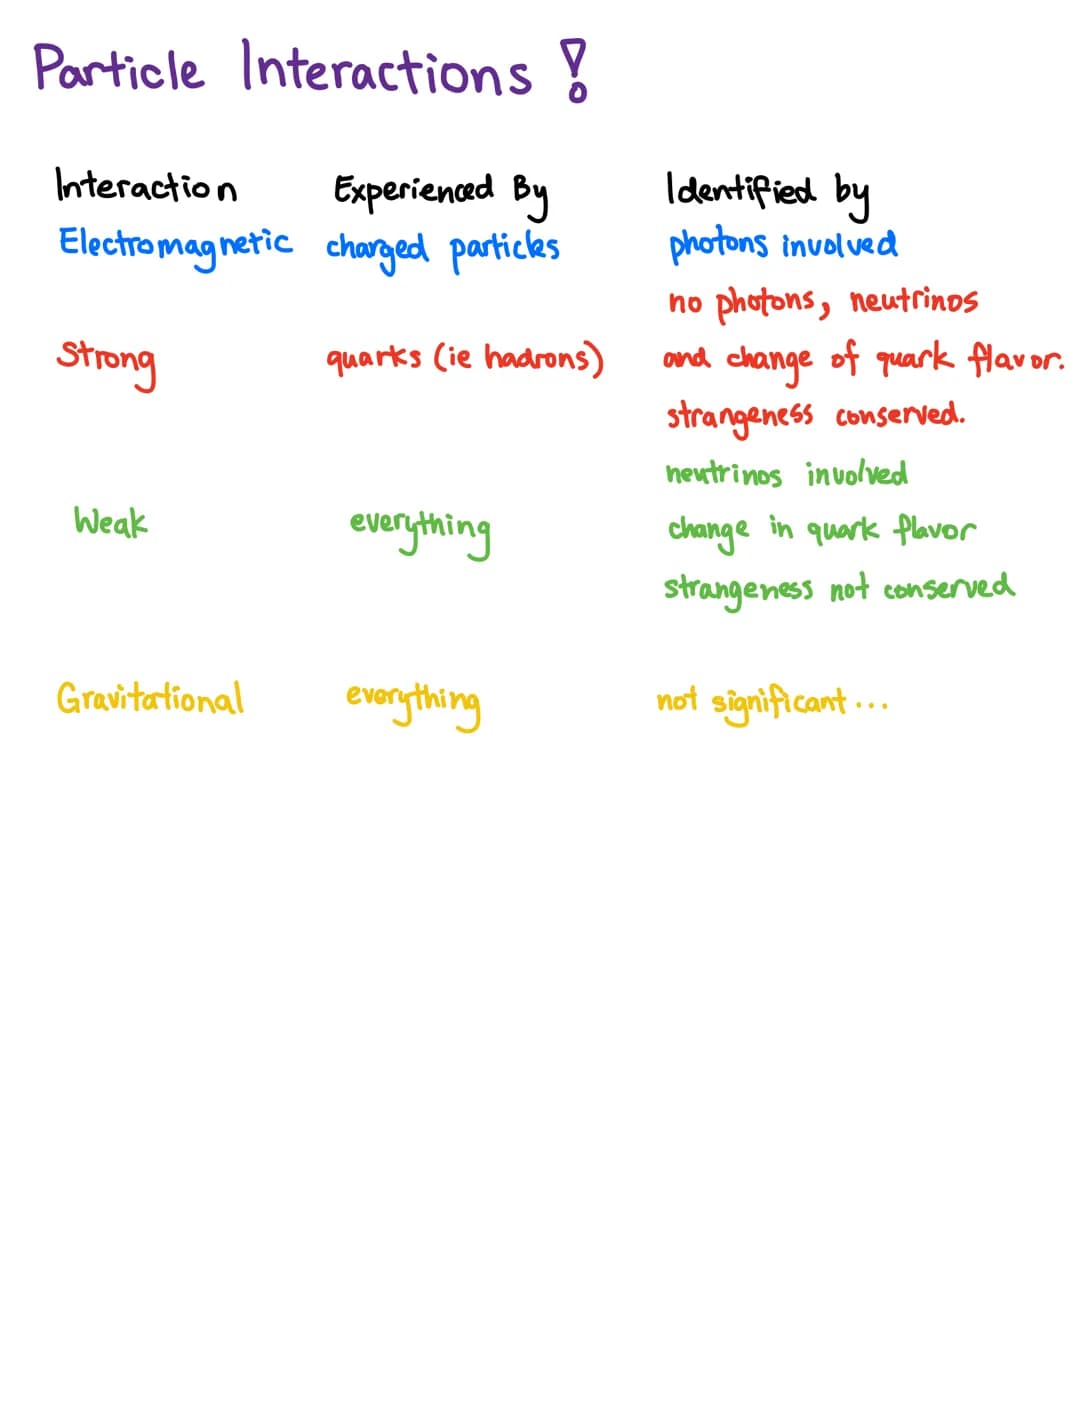 Particle Interactions!
Interaction Experienced By Identified by
Electromagnetic charged particles photons involved
no photons, neutrinos
Strong quarks (ie hadrons) and change of quark flavor.
strangeness conserved.
neutrinos involved
Weak everything change in quark flavor
strangeness not conserved
Gravitational everything not significant...